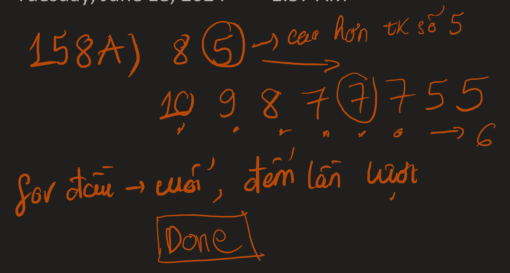 158A) 8 5 → cao hơn tk số 5
10 9 8 7 7 7 5 5
→ 6
for đầu → cuối, đếm lần lượt
Done